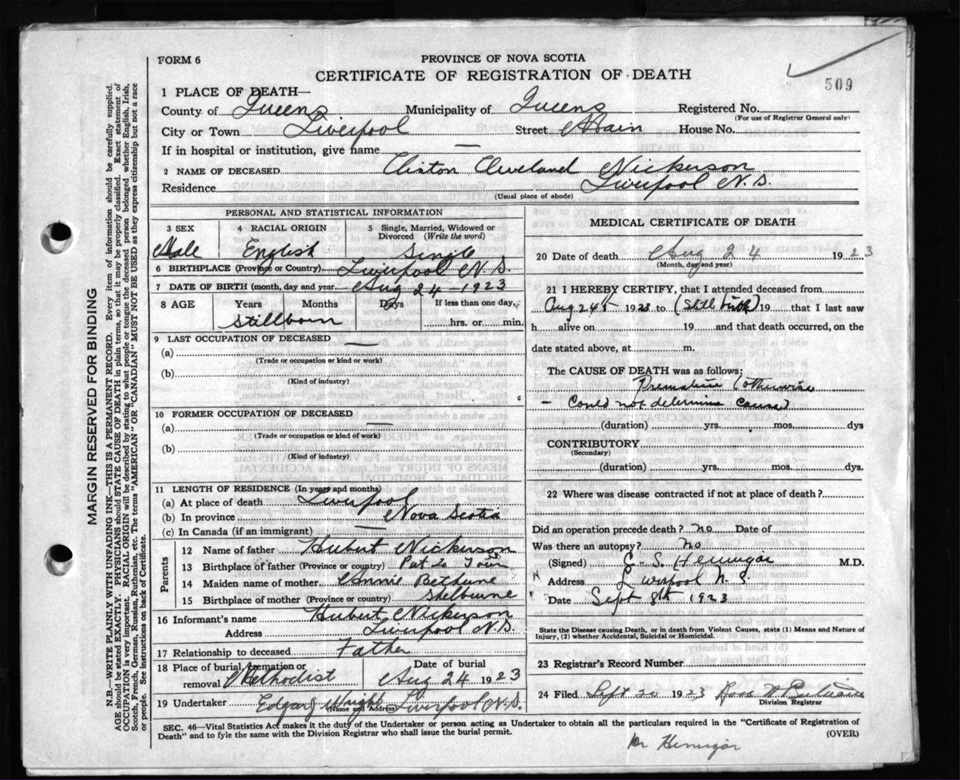 FORM 6
PROVINCE OF NOVA SCOTIA
CERTIFICATE OF REGISTRATION OF DEATH
509
1 PLACE OF DEATH—
County of Queens Municipality of Queens Registered No.
(For use of Registrar General only)
City or Town Liverpool Street Main House No.
If in hospital or institution, give name —
2 NAME OF DECEASED Clinton Cleveland Nickerson
Residence Liverpool N.S.
(Usual place of abode)
PERSONAL AND STATISTICAL INFORMATION
3 SEX 4 RACIAL ORIGIN 5 Single, Married, Widowed or Divorced (Write the word)
Male English Single
6 BIRTHPLACE (Province or Country) Liverpool N.S.
7 DATE OF BIRTH (month, day and year) Aug 24 - 1923
8 AGE Years Months Days If less than one day,
Stillborn hrs. or min.
9 LAST OCCUPATION OF DECEASED —
(a)
(Trade or occupation or kind or work)
(b)
(Kind of industry)
10 FORMER OCCUPATION OF DECEASED
(a) —
(Trade or occupation or kind of work)
(b)
(Kind of industry)
11 LENGTH OF RESIDENCE (In years and months)
(a) At place of death Liverpool
(b) In province Nova Scotia
(c) In Canada (if an immigrant) —
Parents
12 Name of father Hubert Nickerson
13 Birthplace of father (Province or country)
14 Maiden name of mother Annie Bethune
15 Birthplace of mother (Province or country) Shelburne
16 Informant's name Hubert Nickerson
Address Liverpool N.S.
17 Relationship to deceased Father
18 Place of burial, cremation or removal Methodist Date of burial Aug 24 1923
19 Undertaker Edgar Wright Liverpool N.S.
(Name and Address)
MEDICAL CERTIFICATE OF DEATH
20 Date of death Aug 24 1923
(Month, day and year)
21 I HEREBY CERTIFY, that I attended deceased from
Aug 24th 1923 to (Still birth) 19 that I last saw
h alive on 19 and that death occurred, on the
date stated above, at m.
The CAUSE OF DEATH was as follows:
Premature (otherwise
- Could not determine cause)
(duration) yrs. mos. dys
CONTRIBUTORY
(Secondary)
(duration) yrs. mos. dys.
22 Where was disease contracted if not at place of death?
Did an operation precede death? no Date of
Was there an autopsy? no
(Signed) M.D.
Address Liverpool N.S.
Date Sept 8th 1923
State the Disease causing Death, or in death from Violent Causes, state (1) Means and Nature of Injury, (2) whether Accidental, Suicidal or Homicidal.
23 Registrar's Record Number
24 Filed Sept 1923
Division Registrar
SEC. 46—Vital Statistics Act makes it the duty of the Undertaker or person acting as Undertaker to obtain all the particulars required in the "Certificate of Registration of
Death" and to fyle the same with the Division Registrar who shall issue the burial permit.
(OVER)
MARGIN RESERVED FOR BINDING
N.B.—WRITE PLAINLY WITH UNFADING INK—THIS IS A PERMANENT RECORD. Every item of information should be carefully supplied.
AGE should be stated EXACTLY. PHYSICIANS should STATE CAUSE OF DEATH in plain terms, so that it may be properly classified. Exact statement of
OCCUPATION is very important. RACIAL ORIGIN will be described by stating to what people or tongue the deceased person belonged whether English, Irish,
Scotch, French, German, Russian, Ruthenian, etc. The terms "AMERICAN" OR "CANADIAN" MUST NOT BE USED as they express citizenship but not a race
or people. See instructions on back of Certificate.